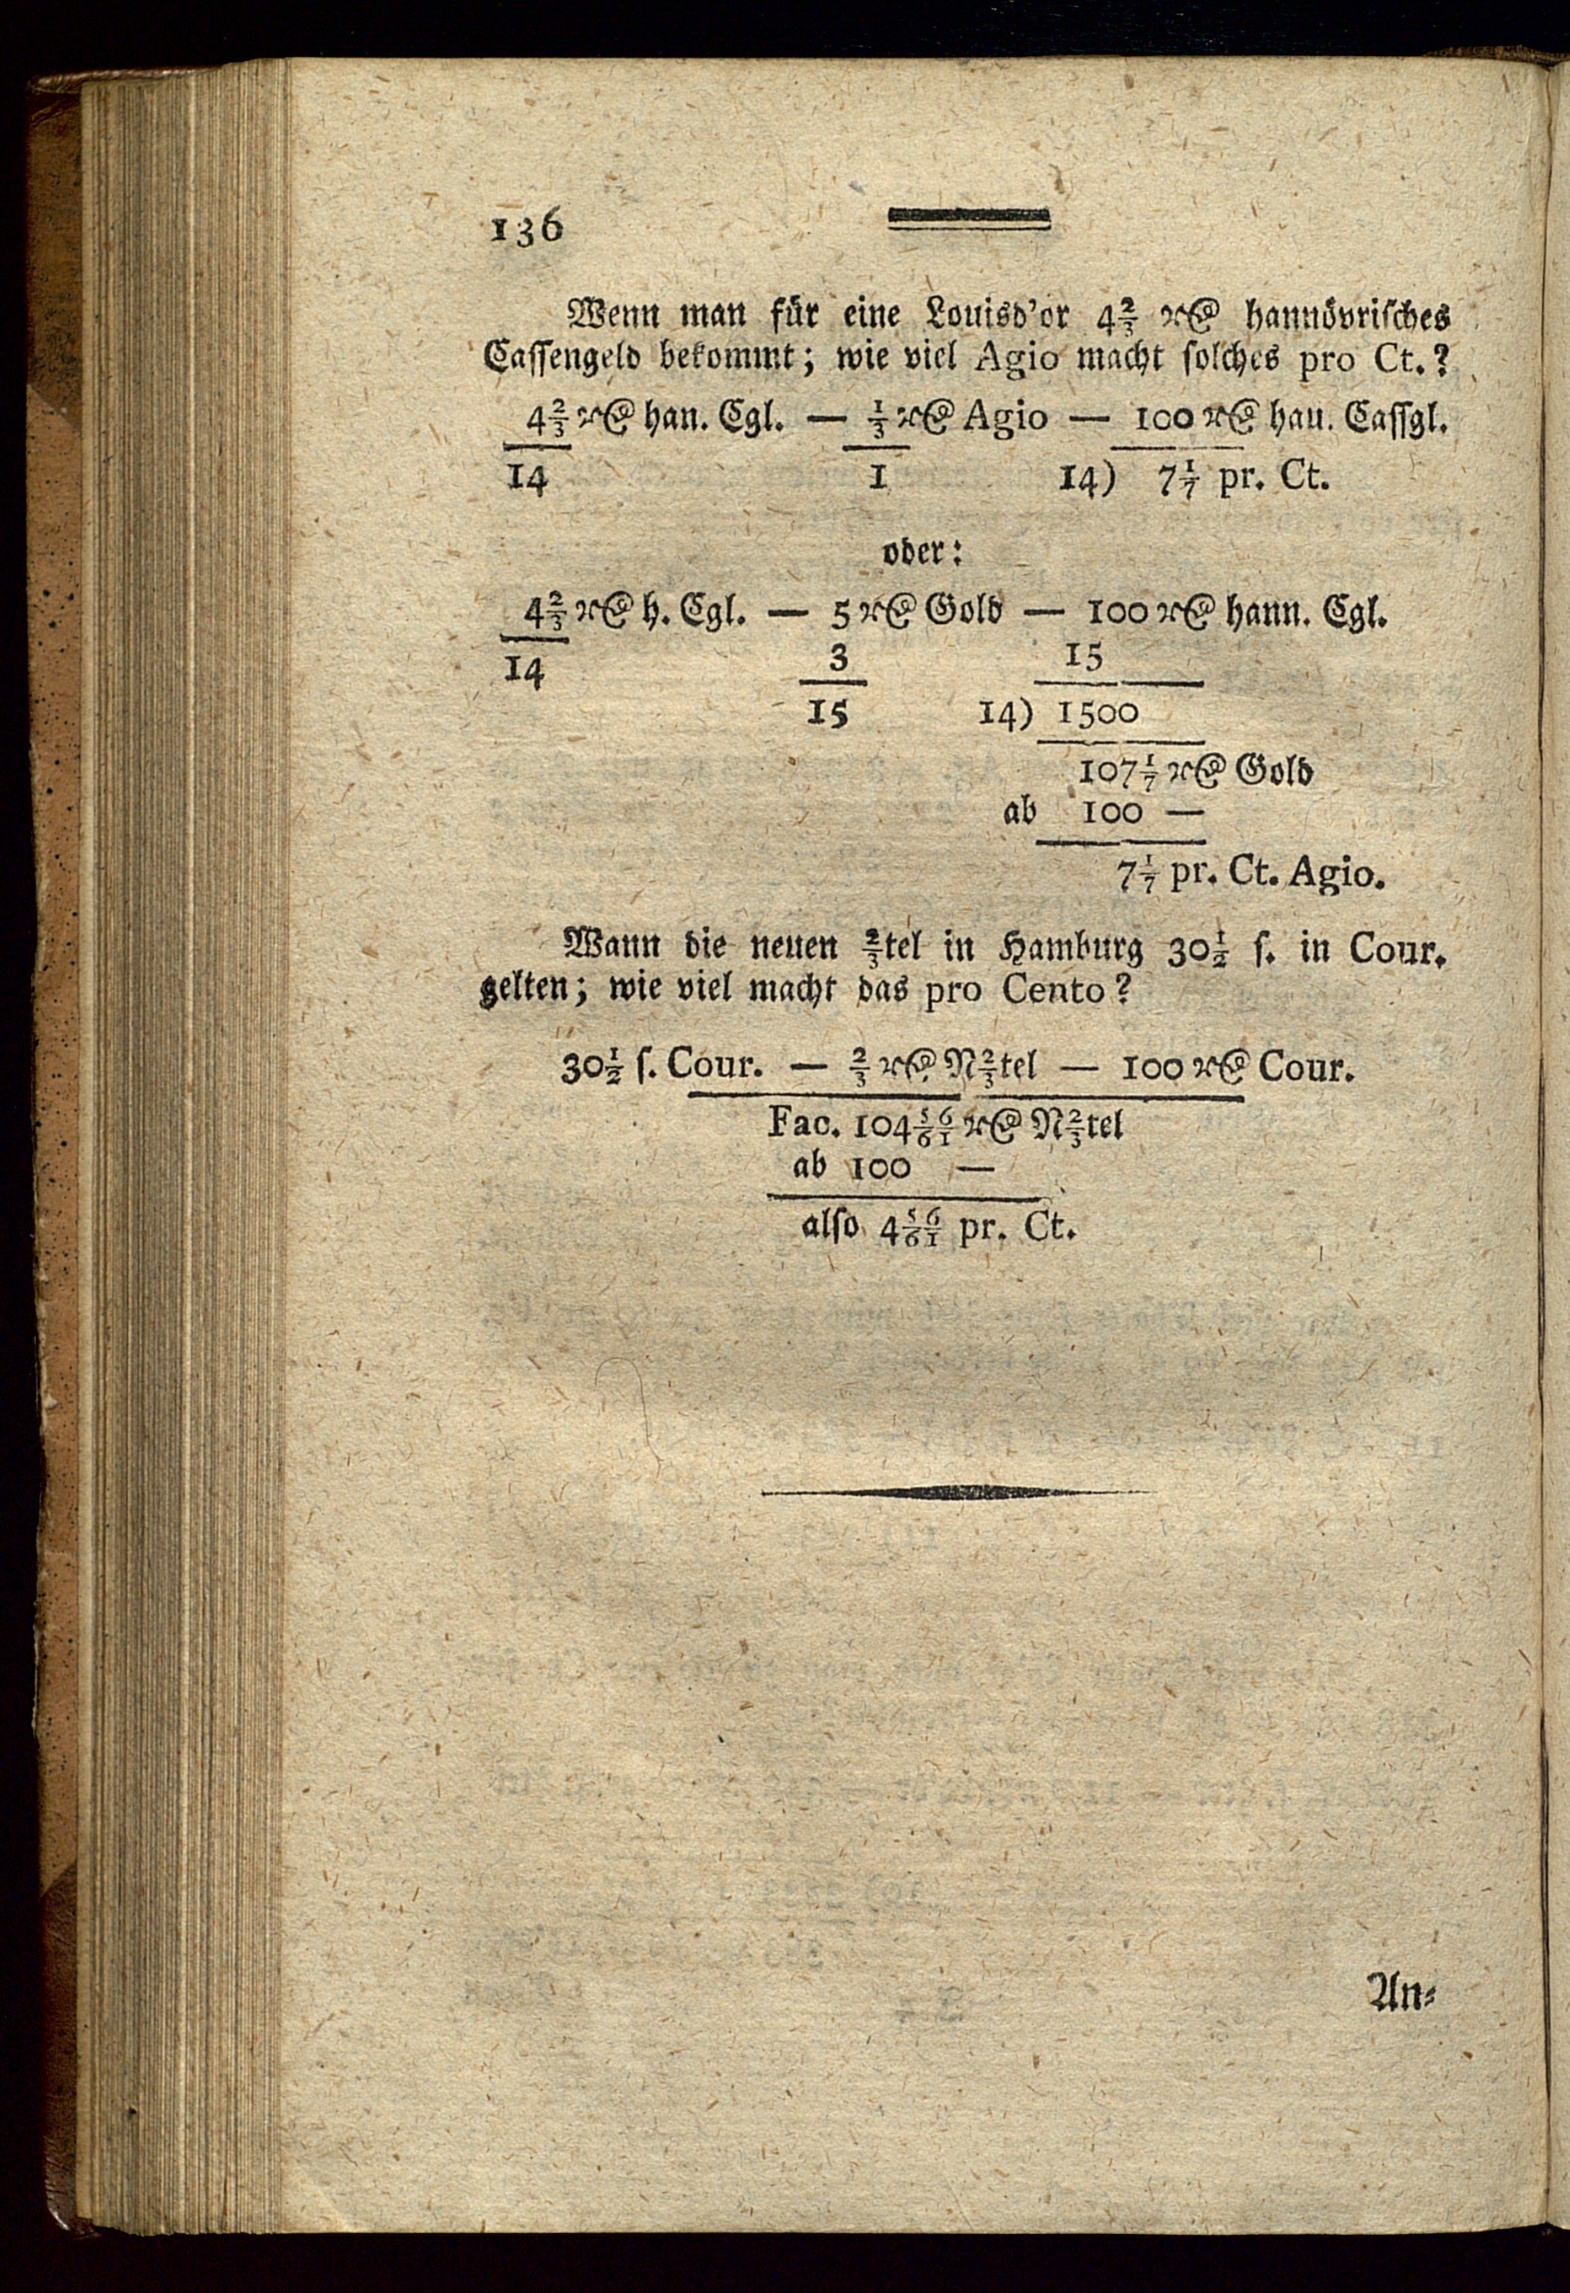 136
Wenn man für eine Louisd'or 4⅔ r@ hannövrisches
Cassengeld bekommt; wie viel Agio macht solches pro Ct.?
4⅔ r@ han. Cgl. — ⅓ r@ Agio — 100 r@ hau. Cassgl.
14 1 14) 7 1/7 pr. Ct.
oder:
4⅔ r@ h. Cgl. — 5 r@ Gold — 100 r@ hann. Cgl.
14 3 15
15 14) 1500
107 1/7 r@ Gold
ab 100 —
7 1/7 pr. Ct. Agio.
Wann die neuen ⅔tel in Hamburg 30½ ſ. in Cour.
gelten; wie viel macht das pro Cento?
30½ ſ. Cour. — ⅔ r@ N⅔tel — 100 r@ Cour.
Fac. 104 56/61 r@ N⅔tel
ab 100 —
also 4 56/61 pr. Ct.
An-